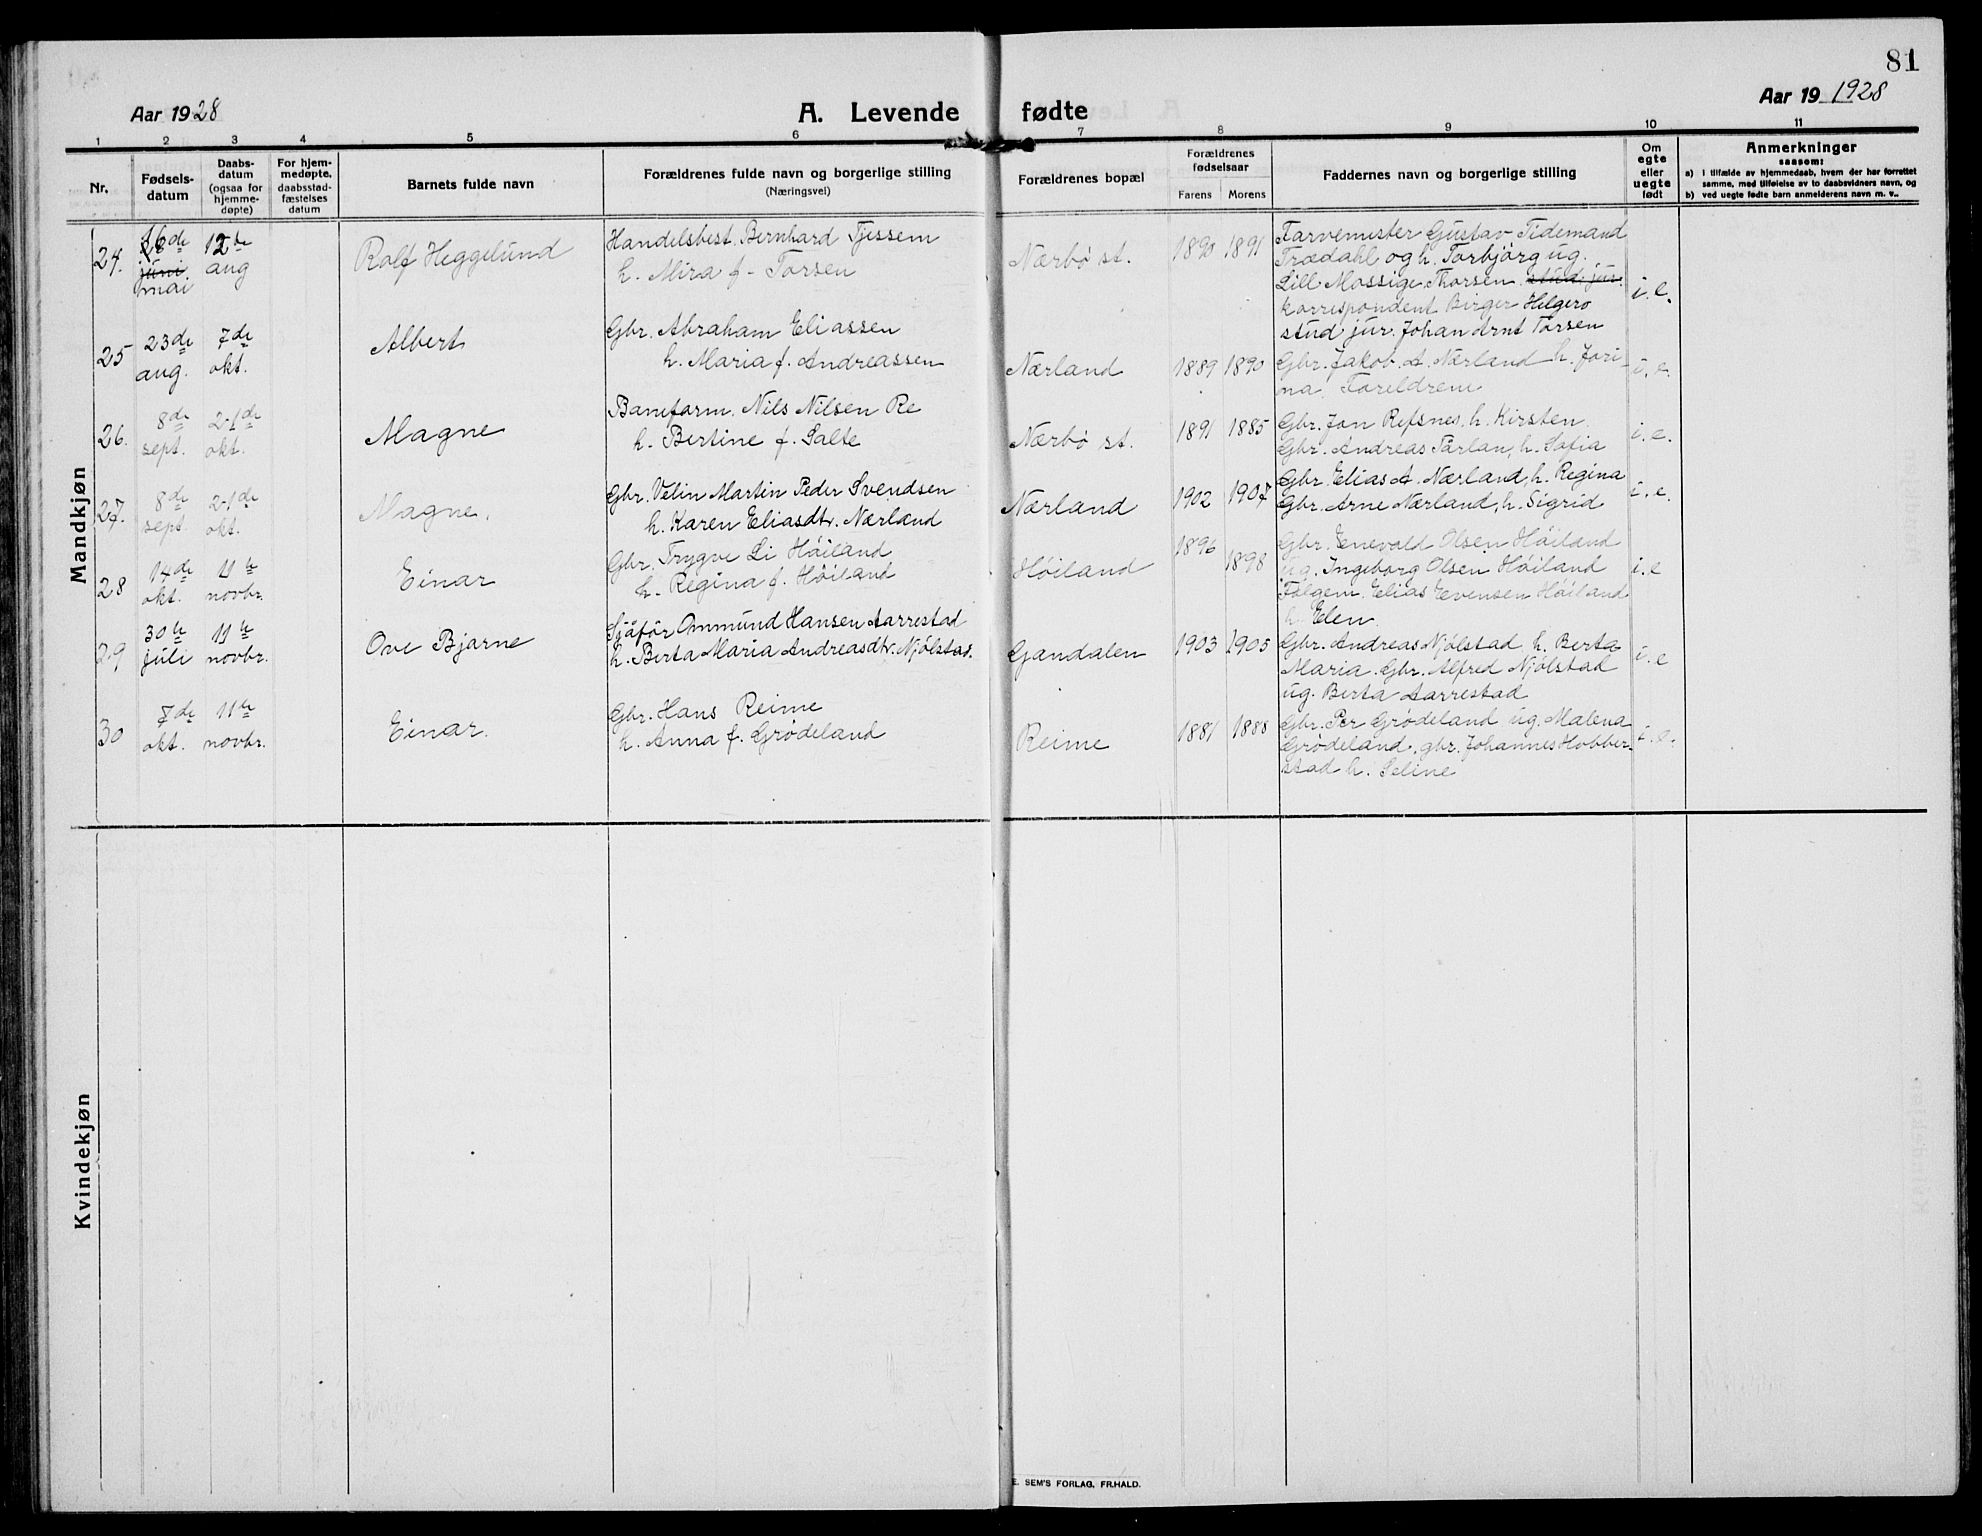 81
Aar 1928
A. Levende fødte
Aar 19 1928
1 2 3 4 5 6 7 8 9 10 11
Nr.
Fødsels-
datum
Daabs-
datum
(ogsaa for
hjemme-
døpte)
For hjem-
medøpte,
daabsstad-
fæstelses
datum
Barnets fulde navn
Forældrenes fulde navn og borgerlige stilling
(Næringsvei)
Forældrenes bopæl
Forældrenes
fødselsaar
Farens Morens
Faddernes navn og borgerlige stilling
Om
egte
eller
uegte
født
Anmerkninger
saasom:
a) i tilfælde av hjemmedaab, hvem der har forrettet
samme, med tilføielse av to daabsvidners navn, og
b) ved uegte fødte barn anmelderens navn m. v..
Mandkjøn
24.
juni
mai
12te
aug
Rolf Heggelund
Handelsbest. Bernhard Tjessem
h. Mira f. Torsen
Nærbø st.
1890 1891
Farvemester Gustav Tidemand
Trædahl og h. Torbjörg ug.
Lill Mossige Thorsen stud. jur.
korrespondent Birger Helgerø
stud jur. Johan Arnt Torsen
i.e.
25
23de
aug.
7de
okt.
Albert
Gbr. Abraham Eliassen
h. Maria f. Andreassen
Nærland
1889 1890
Gbr. Jakob A. Nærland h. Jori-
na. Foreldrene
i.e.
26.
8de
sept.
21de
okt.
Magne
Baneform. Nils Nilsen Re
h. Bertine f. Salte
Nærbø st.
1891 1885
Gbr. Jon Refsnes, h. Kirsten.
Gbr. Andreas Tårlan, h. Sofia
i.e.
27.
8de
sept.
21de
okt.
Magne.
Gbr. Velin Martin Peder Svendsen
h. Karen Eliasdtr. Nærland
Nærland
1902 1907
Gbr. Elias A. Nærland, h. Regina
Gbr. Arne Nærland, h. Sigrid
i.e.
28
14de
okt.
11te
novbr.
Einar
Gbr. Trygve Li Höiland
h. Regina f. Höiland
Höiland
1896 1898
Gbr. Enevald Olsen Höiland
ug. Ingeborg Olsen Höiland
Følgem. Elias Evensen Höiland
h. Elen.
i.e
29
30te
juli
11te
novbr.
Ove Bjarne
Sjåför Ommund Hansen Aarrestad
h. Berta Maria Andreasdtr. Njölstad.
Gandalen
1903 1905
Gbr. Andreas Njölstad h. Berta
Maria. Gbr. Alfred Njölstad
ug. Berta Aarrestad
i.e
30
7de
okt.
11te
novbr.
Einar.
Gbr. Hans Reime
h. Anna f. Grödeland
Reime
1881 1888
Gbr. Per Grödeland ug. Malena
Grödeland, gbr. Johannes Hobber-
stad h. Seline
i.e.
Kvindekjøn
E. SEM'S FORLAG, FR.HALD.